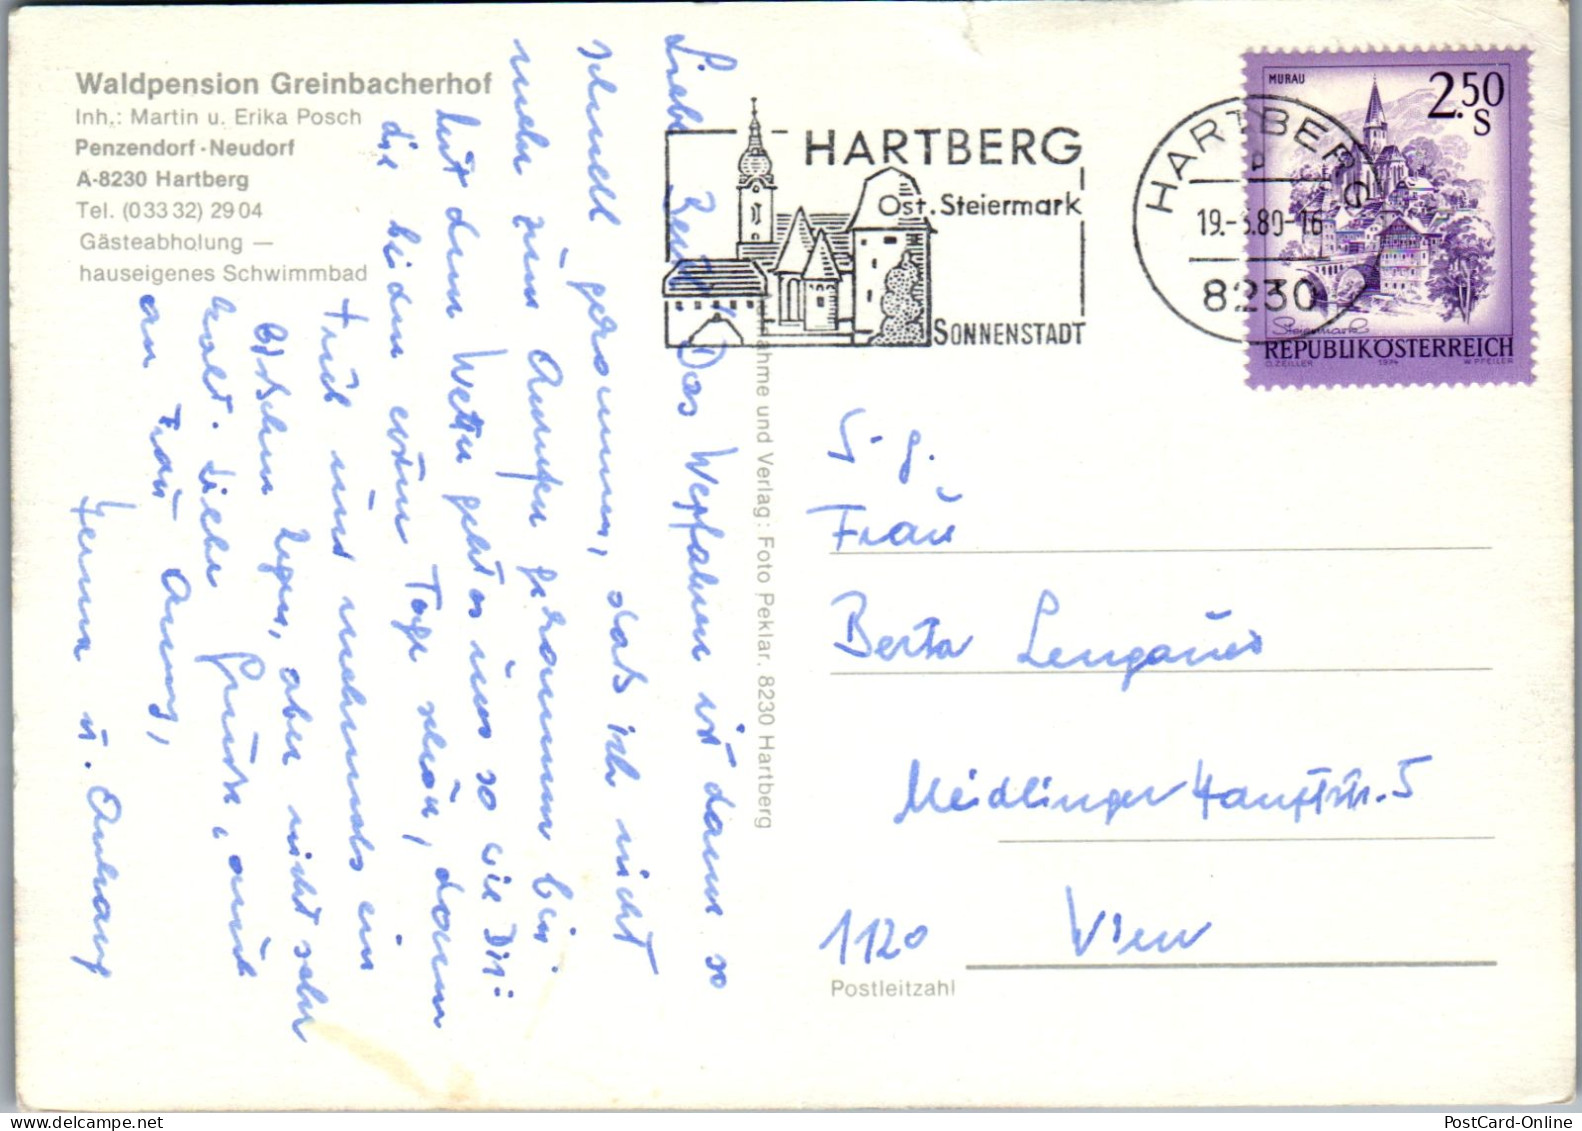 Waldpension Greinbacherhof
Inh.: Martin u. Erika Posch
Penzendorf - Neudorf
A-8230 Hartberg
Tel. (033 32) 29 04
Gästeabholung —
hauseigenes Schwimmbad
HARTBERG
Ost. Steiermark
SONNENSTADT
HARTBERG
19.-80-16
8230
MURAU
2.50
S
Steiermark
REPUBLIK ÖSTERREICH
O. ZEILLER 1974 W. PFEILER
Liebe Das Wegfahren ist dann so
schnell gekommen, daß ich nicht
mehr zum Anrufen gekommen bin
mit dem Wetter geht es uns so wie Dir:
die beiden ersten Tage schön, dann
früh und mehrmals ein
bißchen Regen, aber nicht sehr
kalt. Liebe Grüße, auch
an Frau
u.
Aufnahme und Verlag: Foto Peklar, 8230 Hartberg
S. g.
Frau
Berta Lengauer
Meidlinger Hauptstr. 5
1120 Wien
Postleitzahl
PostCard-Online